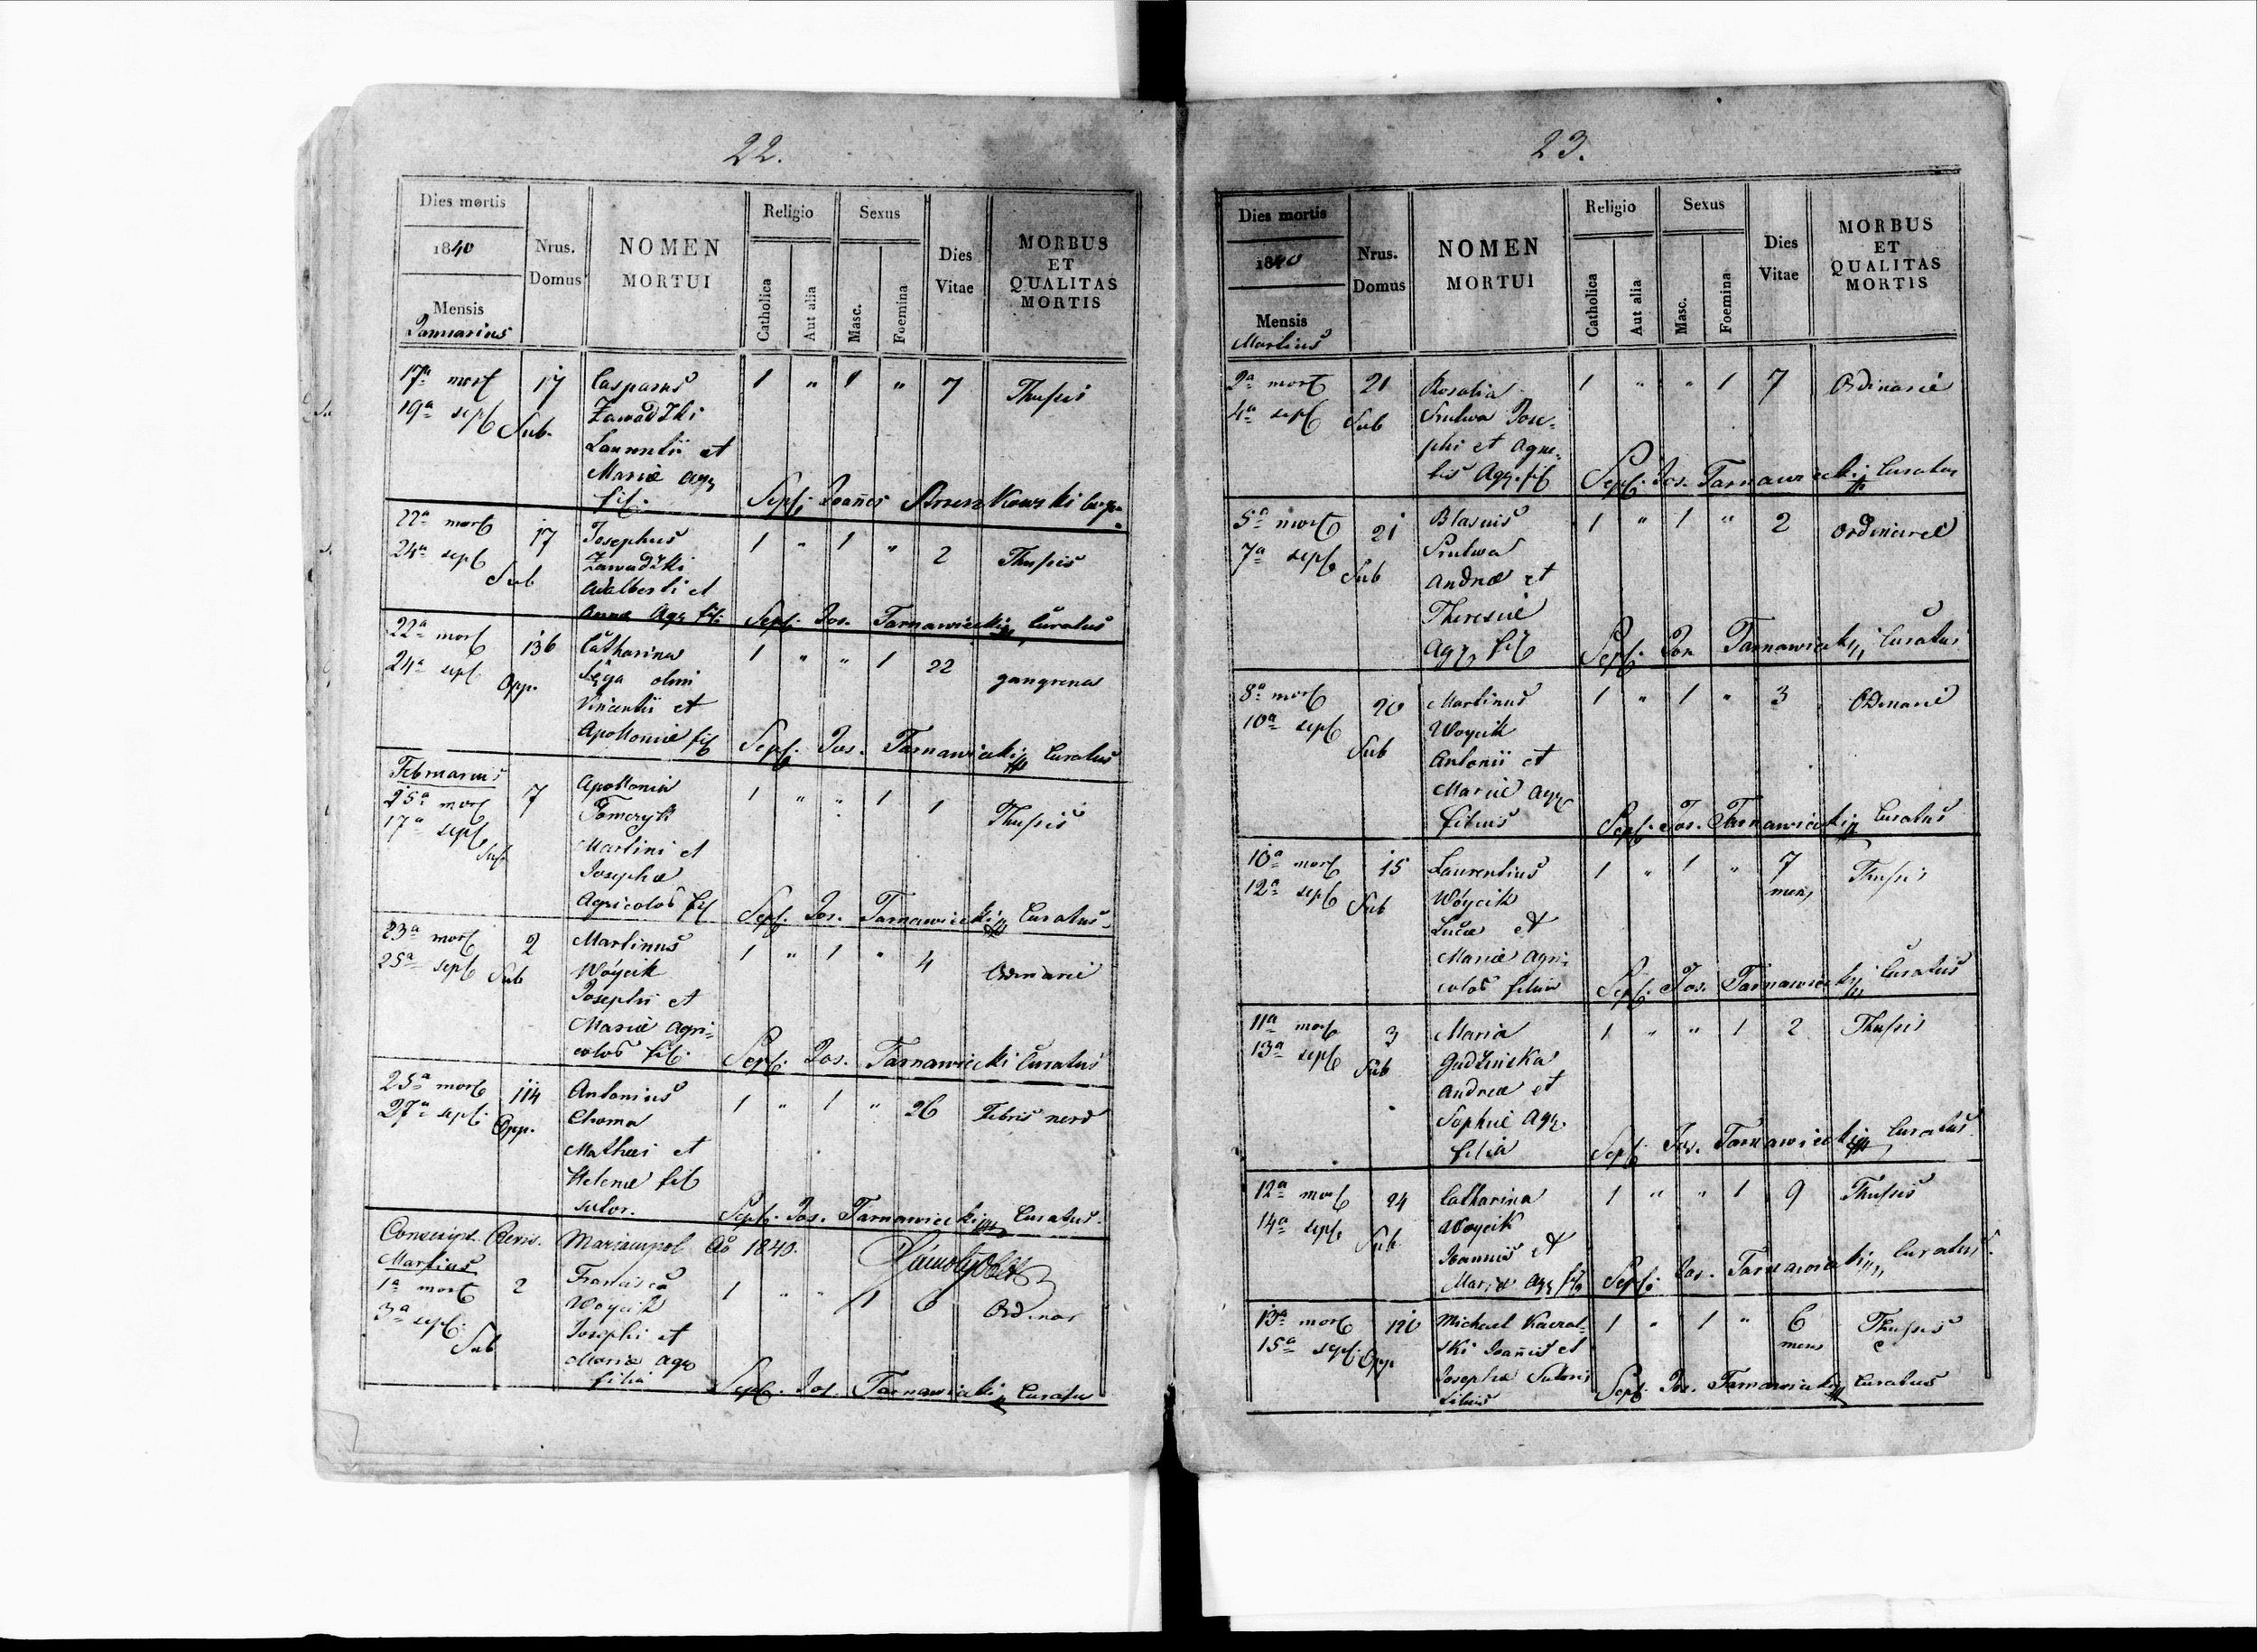 22.
Dies mortis
1840
Mensis
Januarius
Nrus.
Domus
NOMEN
MORTUI
Religio
Catholica
Aut alia
Sexus
Masc.
Foemina
Dies
Vitae
MORBUS
ET
QUALITAS
MORTIS
17a mort 17 Casparus 1 " 1 " 7 Thussis
19a sept Sub. Zawadzki
Laurentii et
Mariæ Agr
fil. Sepl. Joannes
22a mort 17 Josephus 1 " 1 " 2 Thussis
24a sepl Sub Zawadzki
Adalberti et
Annæ Agr fil. Sepl. Jos. Tarnawiecki Curatus
22a mort 136 Catharina 1 " " 1 22 gangrena
24a sepl Opp. olim
Vincentii et
Apolloniæ fil Sepl. Jos. Tarnawiecki Curatus
Februarius
15a mort 7 Apollonia 1 " " 1 1 Thussis
17a sepl Sub Tomczyk
Martini et
Josephæ
Agricolos fil Sepl. Jos. Tarnawiecki Curatus
23a mort 2 Martinus 1 " 1 " 4 Ordinarie
25a sepl Sub Wóycik
Josephi et
Mariæ Agri-
colos fil. Sepl. Jos. Tarnawiecki Curatus
25a mort 114 Antonius 1 " 1 " 26 Febris nerv
27a sepl. Opp. Choma
Mathæi et
Helenæ fil
sutor. Sepl. Jos. Tarnawiecki Curatus.
Conscript. Mariampol Ao 1840.
Martius
1a mort 2 Francisca 1 " " 1 6 Ordinar
3a sepl. Sub Woycik
Josephi et
Mariæ Agr
filia Sepl. Jos. Tarnawiecki Curatus
23.
Dies mortis
1840
Mensis
Martius
Nrus.
Domus
NOMEN
MORTUI
Religio
Catholica
Aut alia
Sexus
Masc.
Foemina
Dies
Vitae
MORBUS
ET
QUALITAS
MORTIS
2a mort 21 Rosalia 1 " " 1 7 Ordinarie
4a sepl Sub Srutwa Jose-
phi et Agne-
tis Agr. fil Sepl. Jos. Tarnawiecki Curatus
5a mort 21 Blasius 1 " 1 " 2 Ordinarie
7a sepl Sub Srutwa
Andreæ et
Theresiæ
Agr fil Sepl. Jos Tarnawiecki Curatus
8a mort 20 Martinus 1 " 1 " 3 Ordinarie
10a sepl Sub Woycik
Antonii et
Mariæ Agr
filius Sepl. Jos. Tarnawiecki Curatus
10a mort 15 Laurentius 1 " 1 " 7 mens Thussis
12a sepl Sub Wóycik
Lucæ et
Mariæ Agri-
colos filius Sepl. Jos. Tarnawiecki Curatus
11a mort 3 Maria 1 " " 1 2 Thussis
13a sepl Sub Gudzinska
Andreæ et
Sophiæ Agr.
filia Sepl. Jos. Tarnawiecki Curatus
12a mort 24 Catharina 1 " " 1 9 Thussis
14a sepl Sub Woycik
Joannis et
Mariæ Agr fila Sepl. Jos. Tarnawiecki Curatus.
13a mort 120 Michael 1 " 1 " 6 mens Thussis
15a sepl. Opp ski Joannis et
Josephæ Sutoris
filius Sepl. Jos. Tarnawiecki Curatus